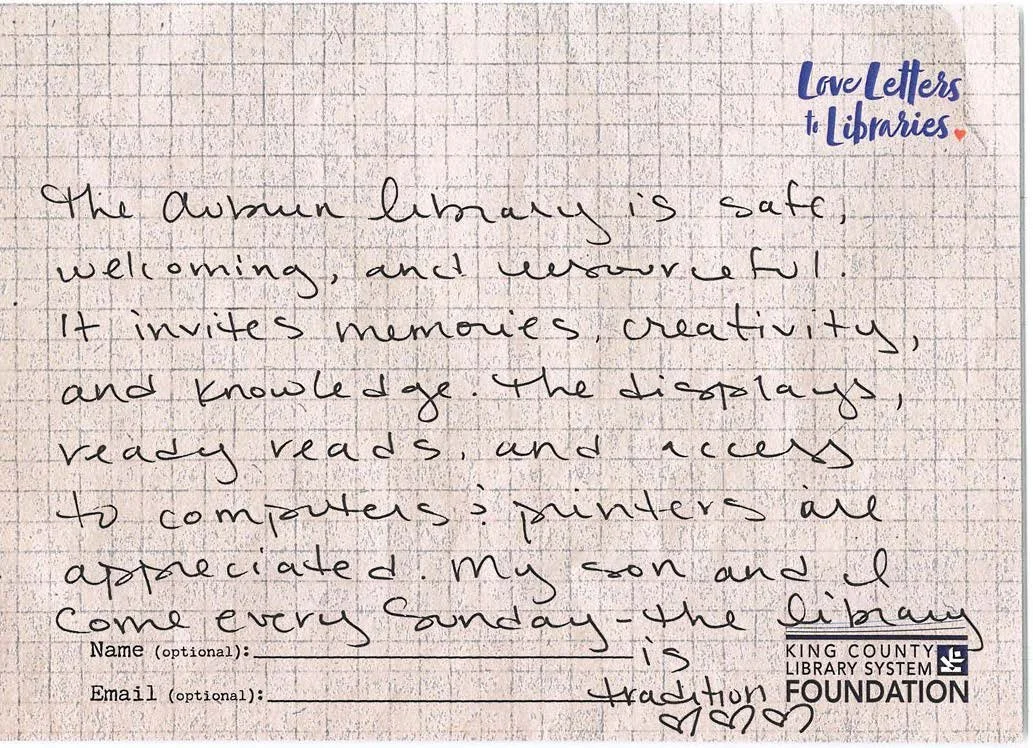 Love Letters
to Libraries
The Auburn library is safe,
welcoming, and resourceful.
It invites memories, creativity,
and knowledge. The displays,
ready reads, and access
to computers & printers are
appreciated. My son and I
come every Sunday - the library
is
tradition
Name (optional):
Email (optional):
KING COUNTY
LIBRARY SYSTEM
FOUNDATION